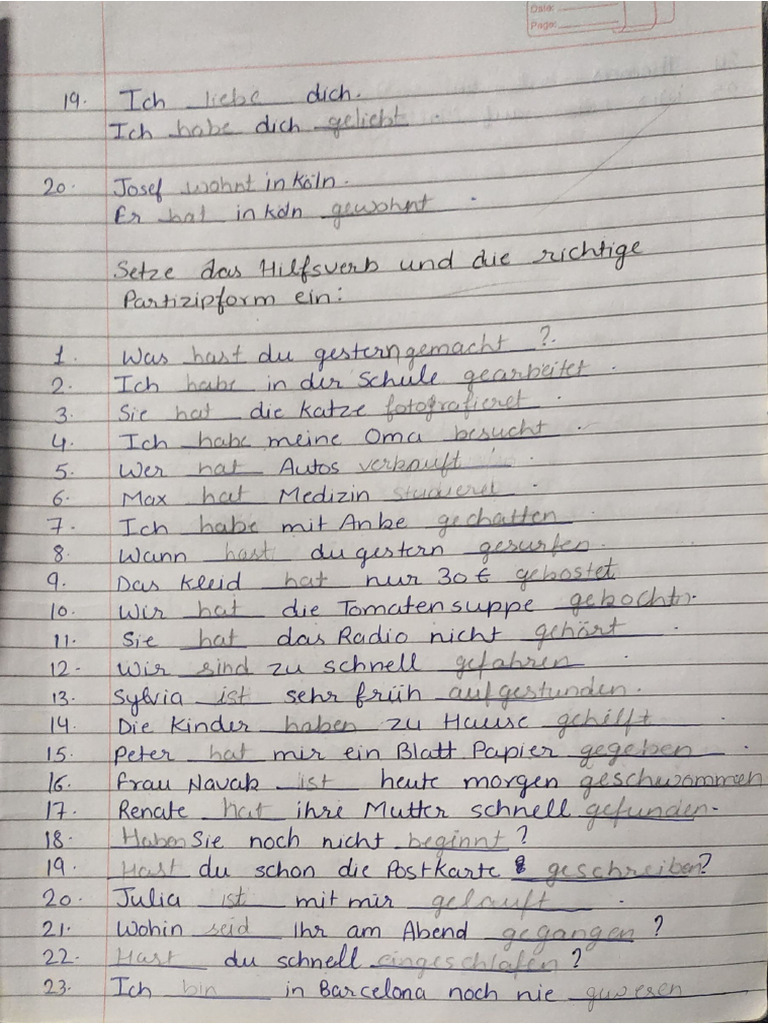 Date:
Page:
19. Ich liebe dich.
Ich habe dich geliebt.
20. Josef wohnt in Köln.
Er hat in Köln gewohnt.
Setze das Hilfsverb und die richtige
Partizipform ein:
1. Was hast du gestern gemacht ?.
2. Ich habe in der Schule gearbeitet.
3. Sie hat die Katze fotografieret.
4. Ich habe meine Oma besucht.
5. Wer hat Autos verkauft.
6. Max hat Medizin studieret.
7. Ich habe mit Anke gechatten.
8. Wann hast du gestern gesurfen.
9. Das Kleid hat nur 30€ gekostet
10. Wir hat die Tomatensuppe gekocht.
11. Sie hat das Radio nicht gehört.
12. Wir sind zu schnell gefahren.
13. Sylvia ist sehr früh aufgestunden.
14. Die Kinder haben zu Hause gehilft.
15. Peter hat mir ein Blatt Papier gegeben.
16. Frau Navab ist heute morgen geschwommen
17. Renate hat ihre Mutter schnell gefunden.
18. Haben Sie noch nicht beginnt?
19. Hast du schon die Postkarte geschreiben?
20. Julia ist mit mir gelauft.
21. Wohin seid Ihr am Abend gegangen?
22. Hast du schnell eingeschlafen?
23. Ich bin in Barcelona noch nie gewesen